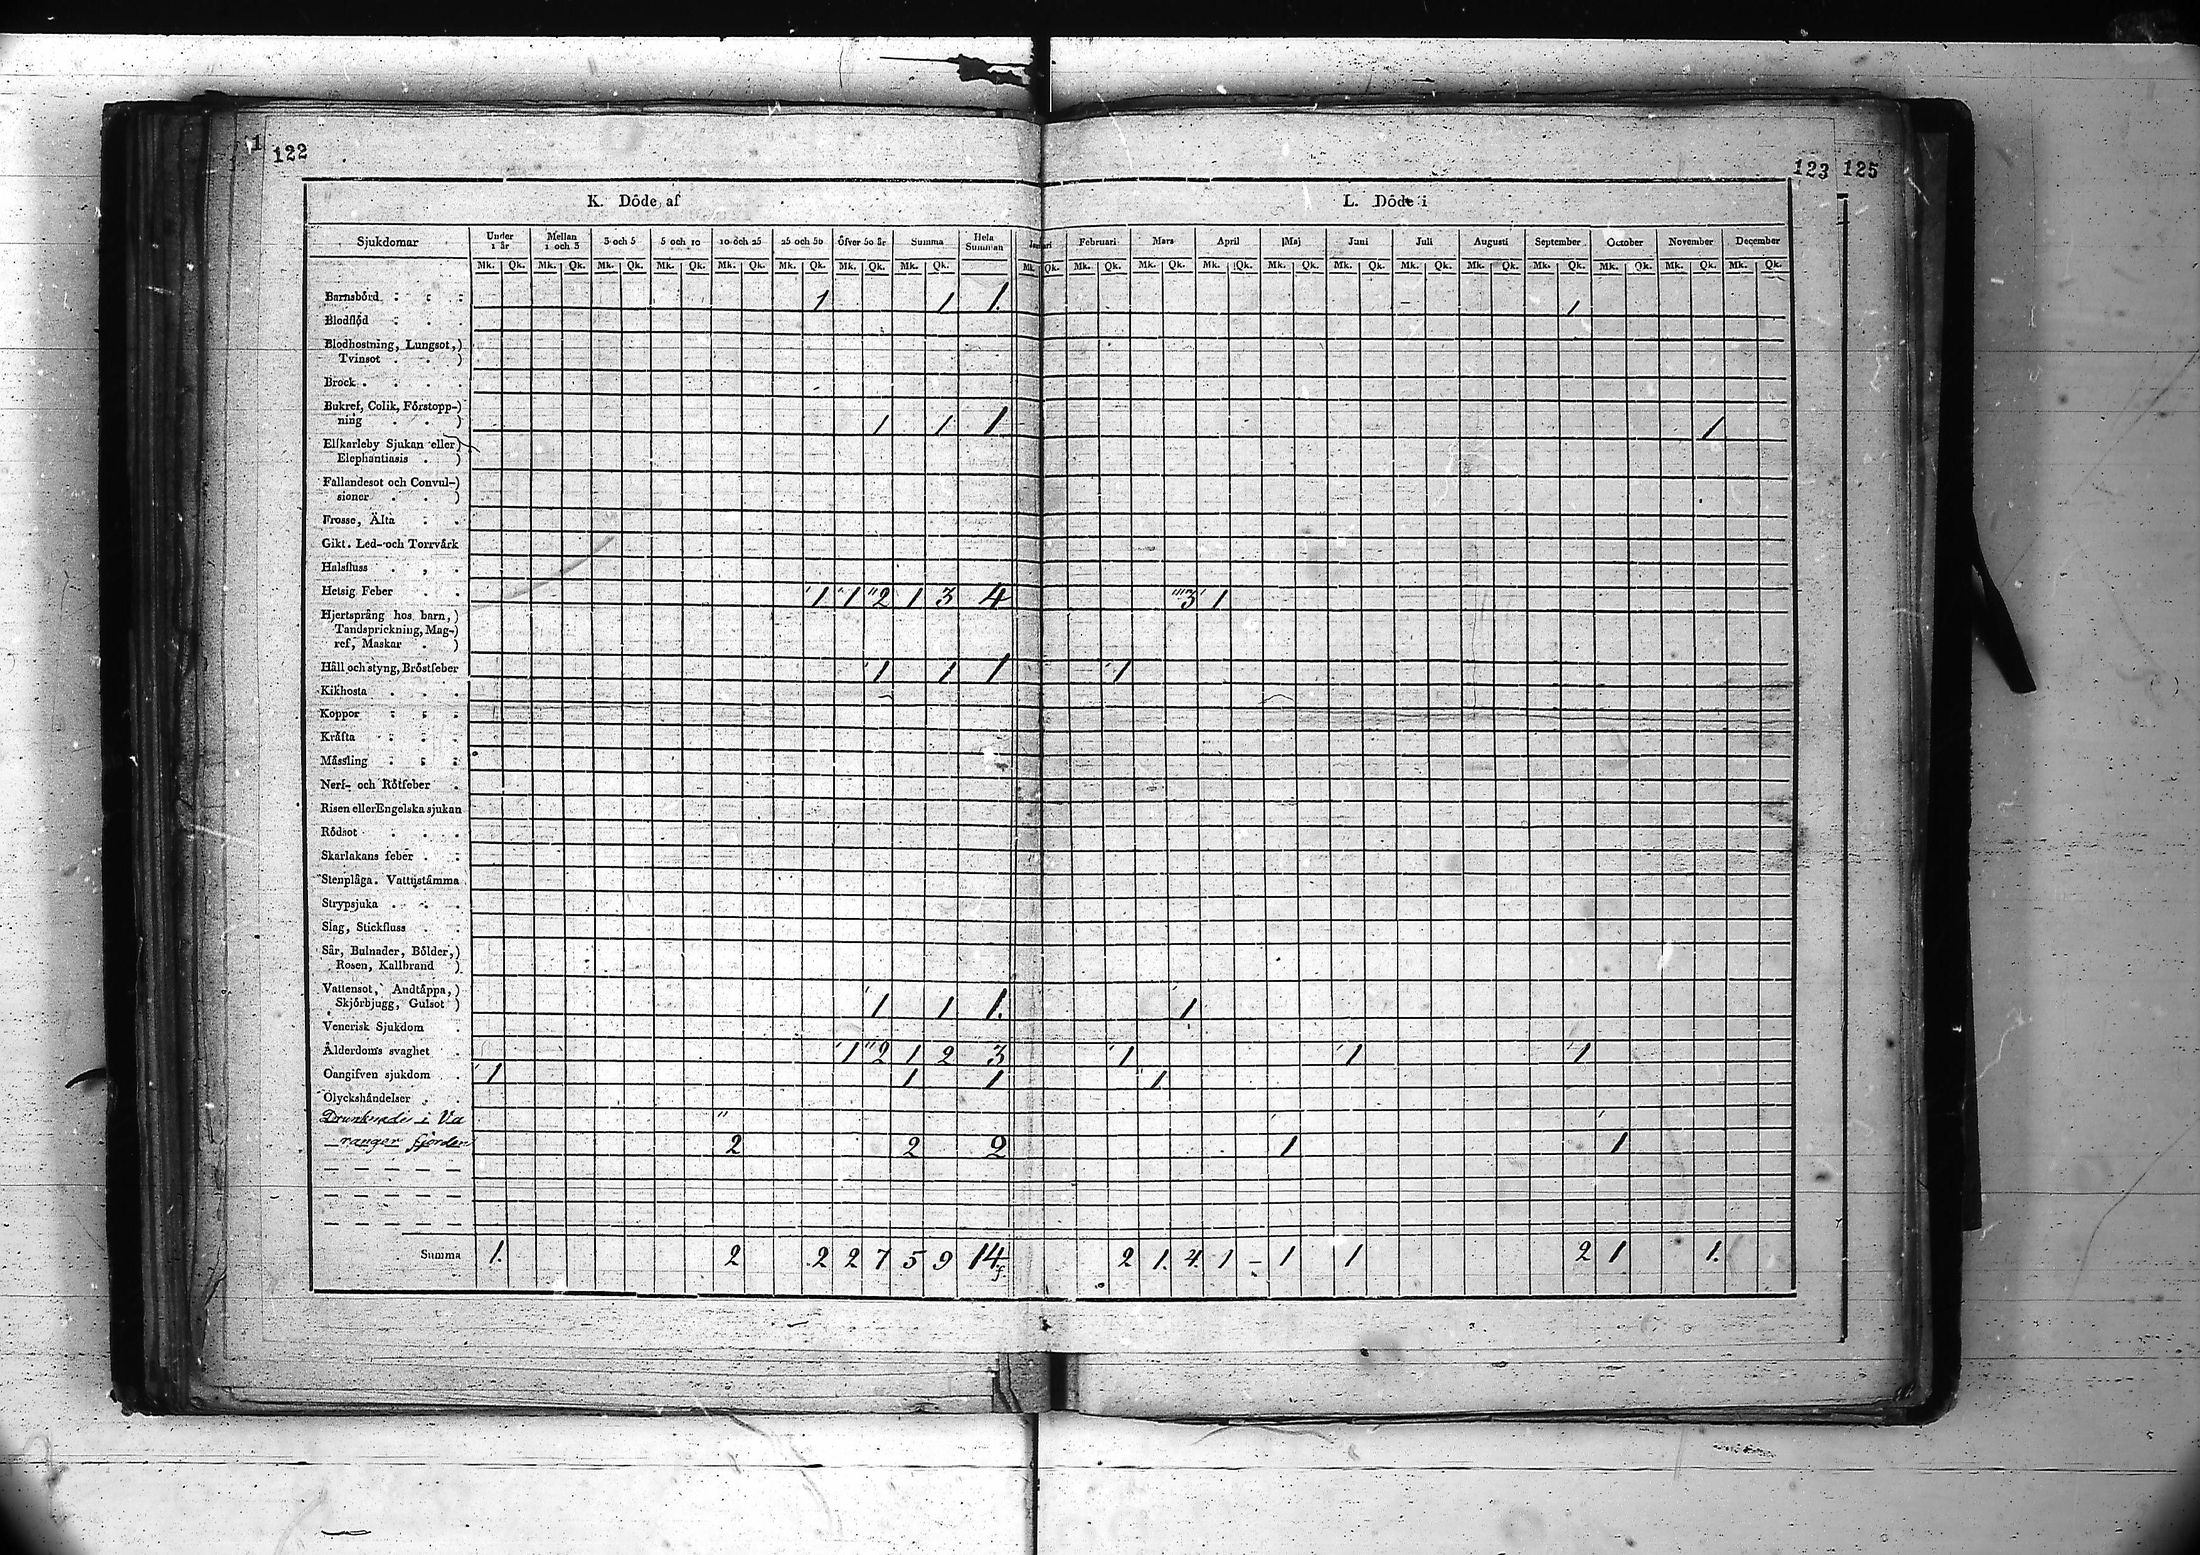 1
122
123 125
K. Döde af
L. Döde i
Sjukdomar Under 1 år Mellan 1 och 3 3 och 5 5 och 10 10 och 25 25 och 50 Öfver 50 år Summa Hela Summan Februari Mars April Maj Juni Juli Augusti September October November December
Mk. Qk. Mk. Qk. Mk. Qk. Mk. Qk. Mk. Qk. Mk. Qk. Mk. Qk. Mk. Qk. Mk. Qk. Mk. Qk. Mk. Qk. Mk. Qk. Mk. Qk. Mk. Qk. Mk. Qk. Mk. Qk. Mk. Qk. Mk. Qk. Mk. Qk. Mk. Qk.
Barnsbörd 1 1 1. 1
Blodflöd
Blodhostning, Lungsot,)
Tvinsot . . )
Brock . . . .
Bukref, Colik, Förstopp-)
ning . . ) 1 1 1 1
Elfkarleby Sjukan eller)
Elephantiasis . )
Fallandesot och Convul-)
sioner . . )
Frosse, Älta
Gikt. Led- och Torrvårk
Halsfluss
Hetsig Feber 1 1 2 1 3 4 3 1
Hjertsprång hos barn,)
Tandsprickning, Mag-)
ref, Maskar . )
Håll och styng, Bröstfeber 1 1 1 1
Kikhosta
Koppor
Kräfta
Mässling
Nerf- och Rötfeber
Risen eller Engelska sjukan
Rödsot
Skarlakans feber
Stenplåga. Vattustämma
Strypsjuka
Slag, Stickfluss
Sår, Bulnader, Bölder,)
Rosen, Kallbrand )
Vattensot, Andtäppa,)
Skjörbjugg, Gulsot ) 1 1 1. 1
Venerisk Sjukdom
Ålderdoms svaghet 1 2 1 2 3 1 1 1
Oangifven sjukdom 1 1 1 1
Olyckshändelser
Drunknade i Va
ranger fjorden 2 2 2 1 1
Summa 1. 2 2 2 7 5 9 14 2 1. 4. 1 – 1 1 2 1 1.